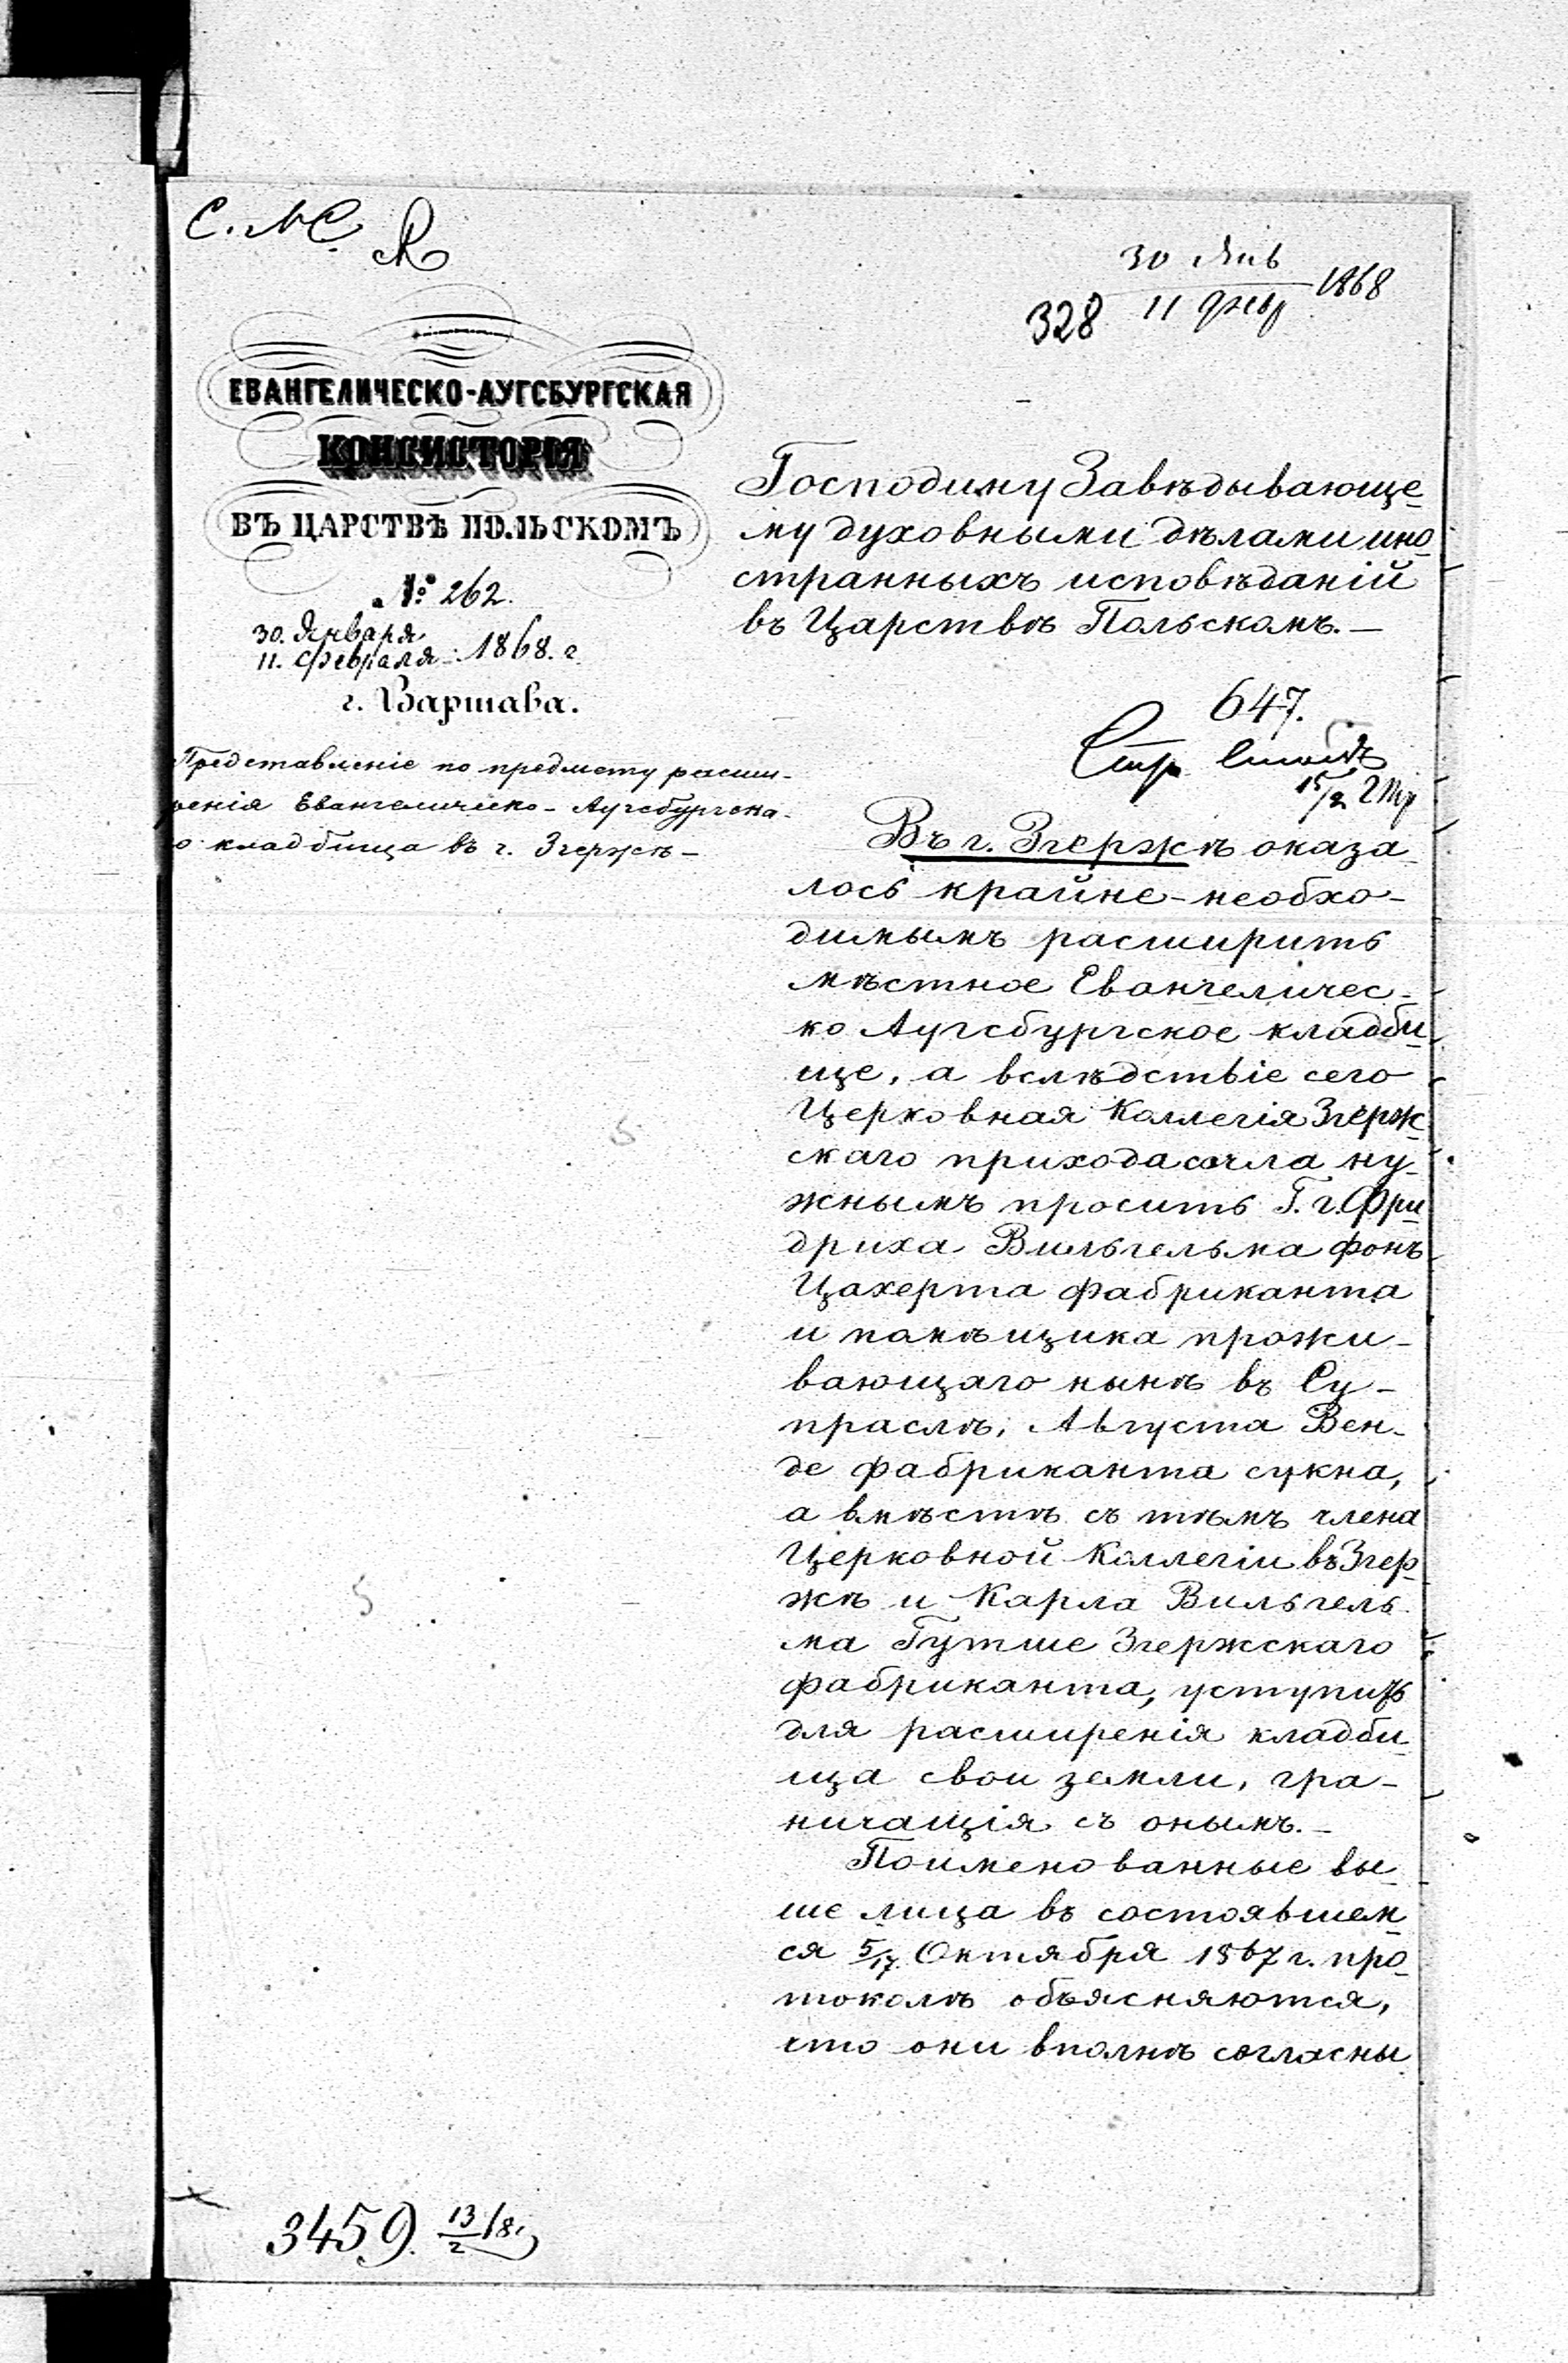 С. М С.
30 Янв
11 Февр 1868
328
ЕВАНГЕЛИЧЕСКО-АУГСБУРГСКАЯ
КОНСИСТОРІЯ
ВЪ ЦАРСТВѢ ПОЛЬСКОМЪ
№ 262.
30. Января
11. Февраля 1868. г.
г. Варшава.
Представленіе по предмету расши-
ренія Евангелическо-Аугсбургска-
о кладбища въ г. Згержѣ-
Господину Завѣдывающе
му духовными дѣлами ино
странныхъ исповѣданій
въ Царствѣ Польскомъ.-
647.
Стр.
15/2
Въ г. Згержѣ оказа
лось крайне-необхо-
димымъ расширить
мѣстное Евангеличес-
ко Аугсбургское кладби
ще, а вслѣдствіе сего
Церковная Коллегія Згерж
скаго прихода сочла ну-
жнымъ просить Г. г. Фри
дриха Вильгельма фонъ
Цахерта фабриканта
и помѣщика прожи-
вающаго нынѣ въ Су-
праслѣ, Августа Вен-
де фабриканта сукна,
а вмѣстѣ съ тѣмъ члена
Церковной Коллегіи въ Згер
жѣ и Карла Вильгель
ма Гутше Згержскаго
фабриканта, уступить
для расширенія кладби
ща свои земли, гра-
ничащія съ онымъ.-
Поименованные вы
ше лица въ состоявшем
ся 5/17. Октября 1867 г. про
токолѣ объясняются,
что они вполнѣ согласны
3459. 13/2